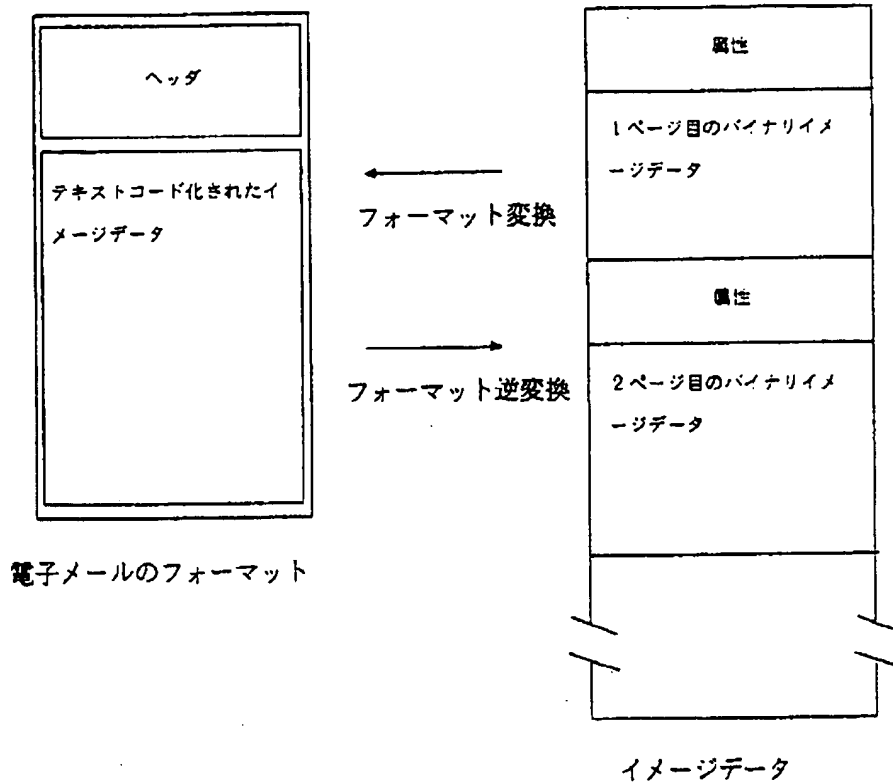 ヘッダ
テキストコード化されたイ
メージデータ
電子メールのフォーマット
フォーマット変換
フォーマット逆変換
属性
1ページ目のバイナリイメ
ージデータ
属性
2ページ目のバイナリイメ
ージデータ
イメージデータ